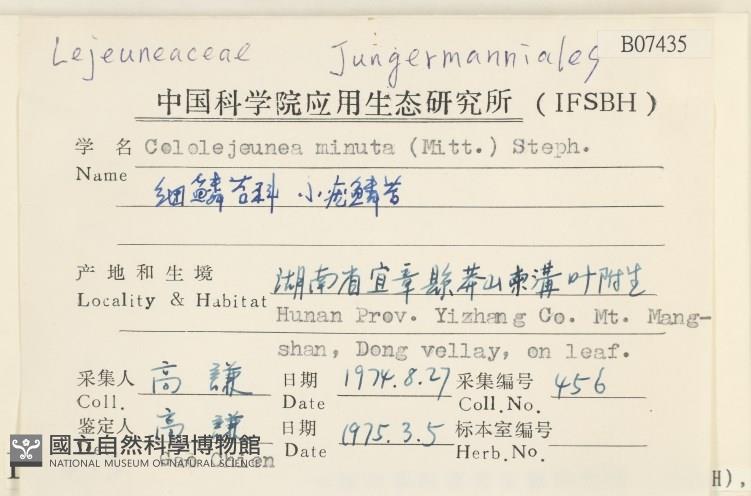 Lejeuneaceae Jungermanniales B07435
中国科学院应用生态研究所 (IFSBH)
学 名 Cololejeunea minuta (Mitt.) Steph.
Name
细鳞苔科 小疣鳞苔
产地和生境 湖南省宜章縣莽山東溝叶附生
Locality & Habitat Hunan Prov. Yizhang Co. Mt. Mang-
shan, Dong vellay, on leaf.
采集人 高 謙 日期 1974.8.27 采集编号 456
Coll. Date Coll.No.
鉴定人 高 謙 日期 1975.3.5 标本室编号
Date Herb.No.
國立自然科學博物館
NATIONAL MUSEUM OF NATURAL SCIENCE
H),